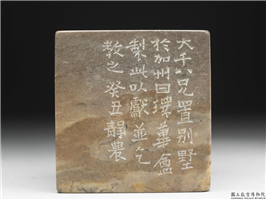 大千八兄置別墅
於加州曰環蓽盦
製此以獻並乞
教之癸丑靜農
國立故宮博物院